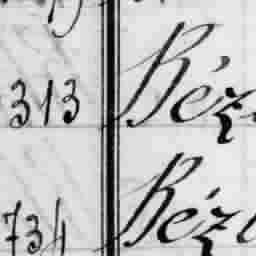 313 Réz
734 Réz